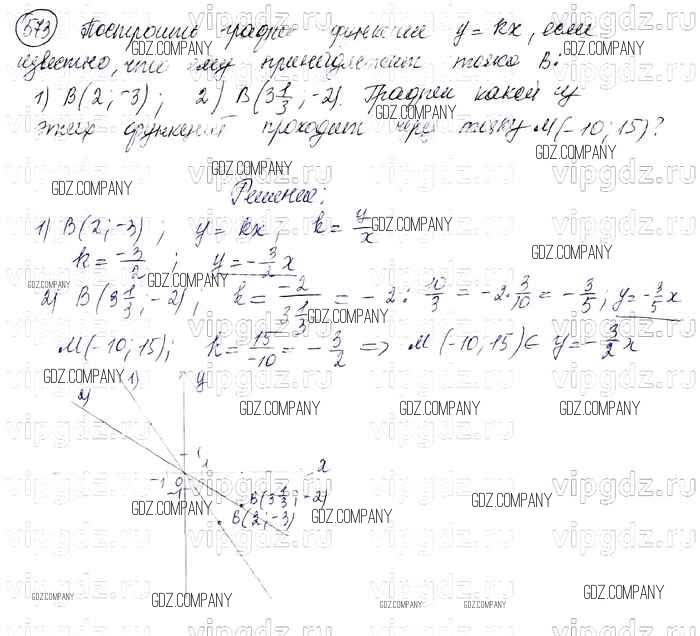 573 Построить график функции y = kx, если
известно, что ему принадлежит точка B:
1) B(2; -3); 2) B(3 1/3; -2). График какой из
этих функций проходит через точку M(-10; 15)?
Решение:
1) B(2; -3); y = kx; k = y/x
k = -3/2; y = -3/2 x
2) B(3 1/3; -2), k = -2/(3 1/3) = -2 : 10/3 = -2 · 3/10 = -3/5, y = -3/5 x
M(-10; 15); k = 15/-10 = -3/2 => M(-10; 15) ∈ y = -3/2 x
2) 1) y
1 1 x
-1 0
-1
B(3 1/3; -2)
B(2; -3)
GDZ.COMPANY
vipgdz.ru